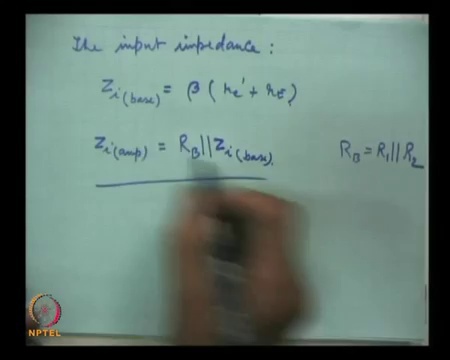 The input impedance :
Z i(base) = β ( re' + rE )
Z i(amp) = RB || Z i(base) .
RB = R1 || R2
NPTEL